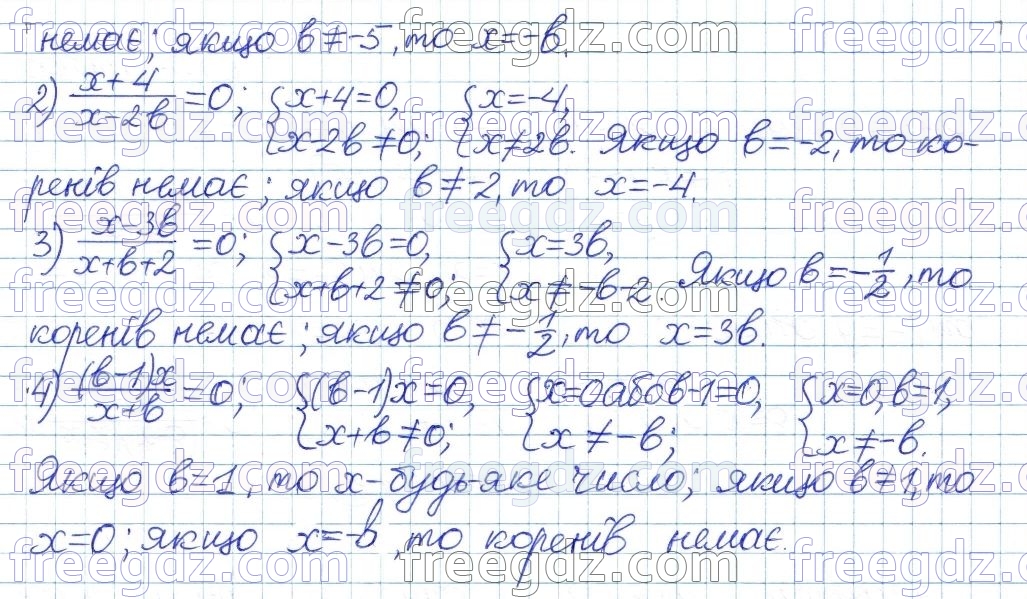 немає; якщо b ≠ -5, то x = -b.
2) (x+4)/(x-2b) = 0; {x+4=0, {x=-4,
{x-2b ≠ 0; {x ≠ 2b. Якщо b = -2, то ко-
ренів немає; якщо b ≠ -2, то x = -4.
3) (x-3b)/(x+b+2) = 0; {x-3b=0, {x=3b,
{x+b+2 ≠ 0; {x ≠ -b-2. Якщо b = -1/2, то
коренів немає; якщо b ≠ -1/2, то x = 3b.
4) (b-1)x/(x+b) = 0; {(b-1)x=0, {x=0 або b-1=0, {x=0, b=1,
{x+b ≠ 0; {x ≠ -b; {x ≠ -b.
Якщо b = 1, то x - будь-яке число; якщо b ≠ 1, то
x = 0; якщо x = -b, то коренів немає.
freegdz.com